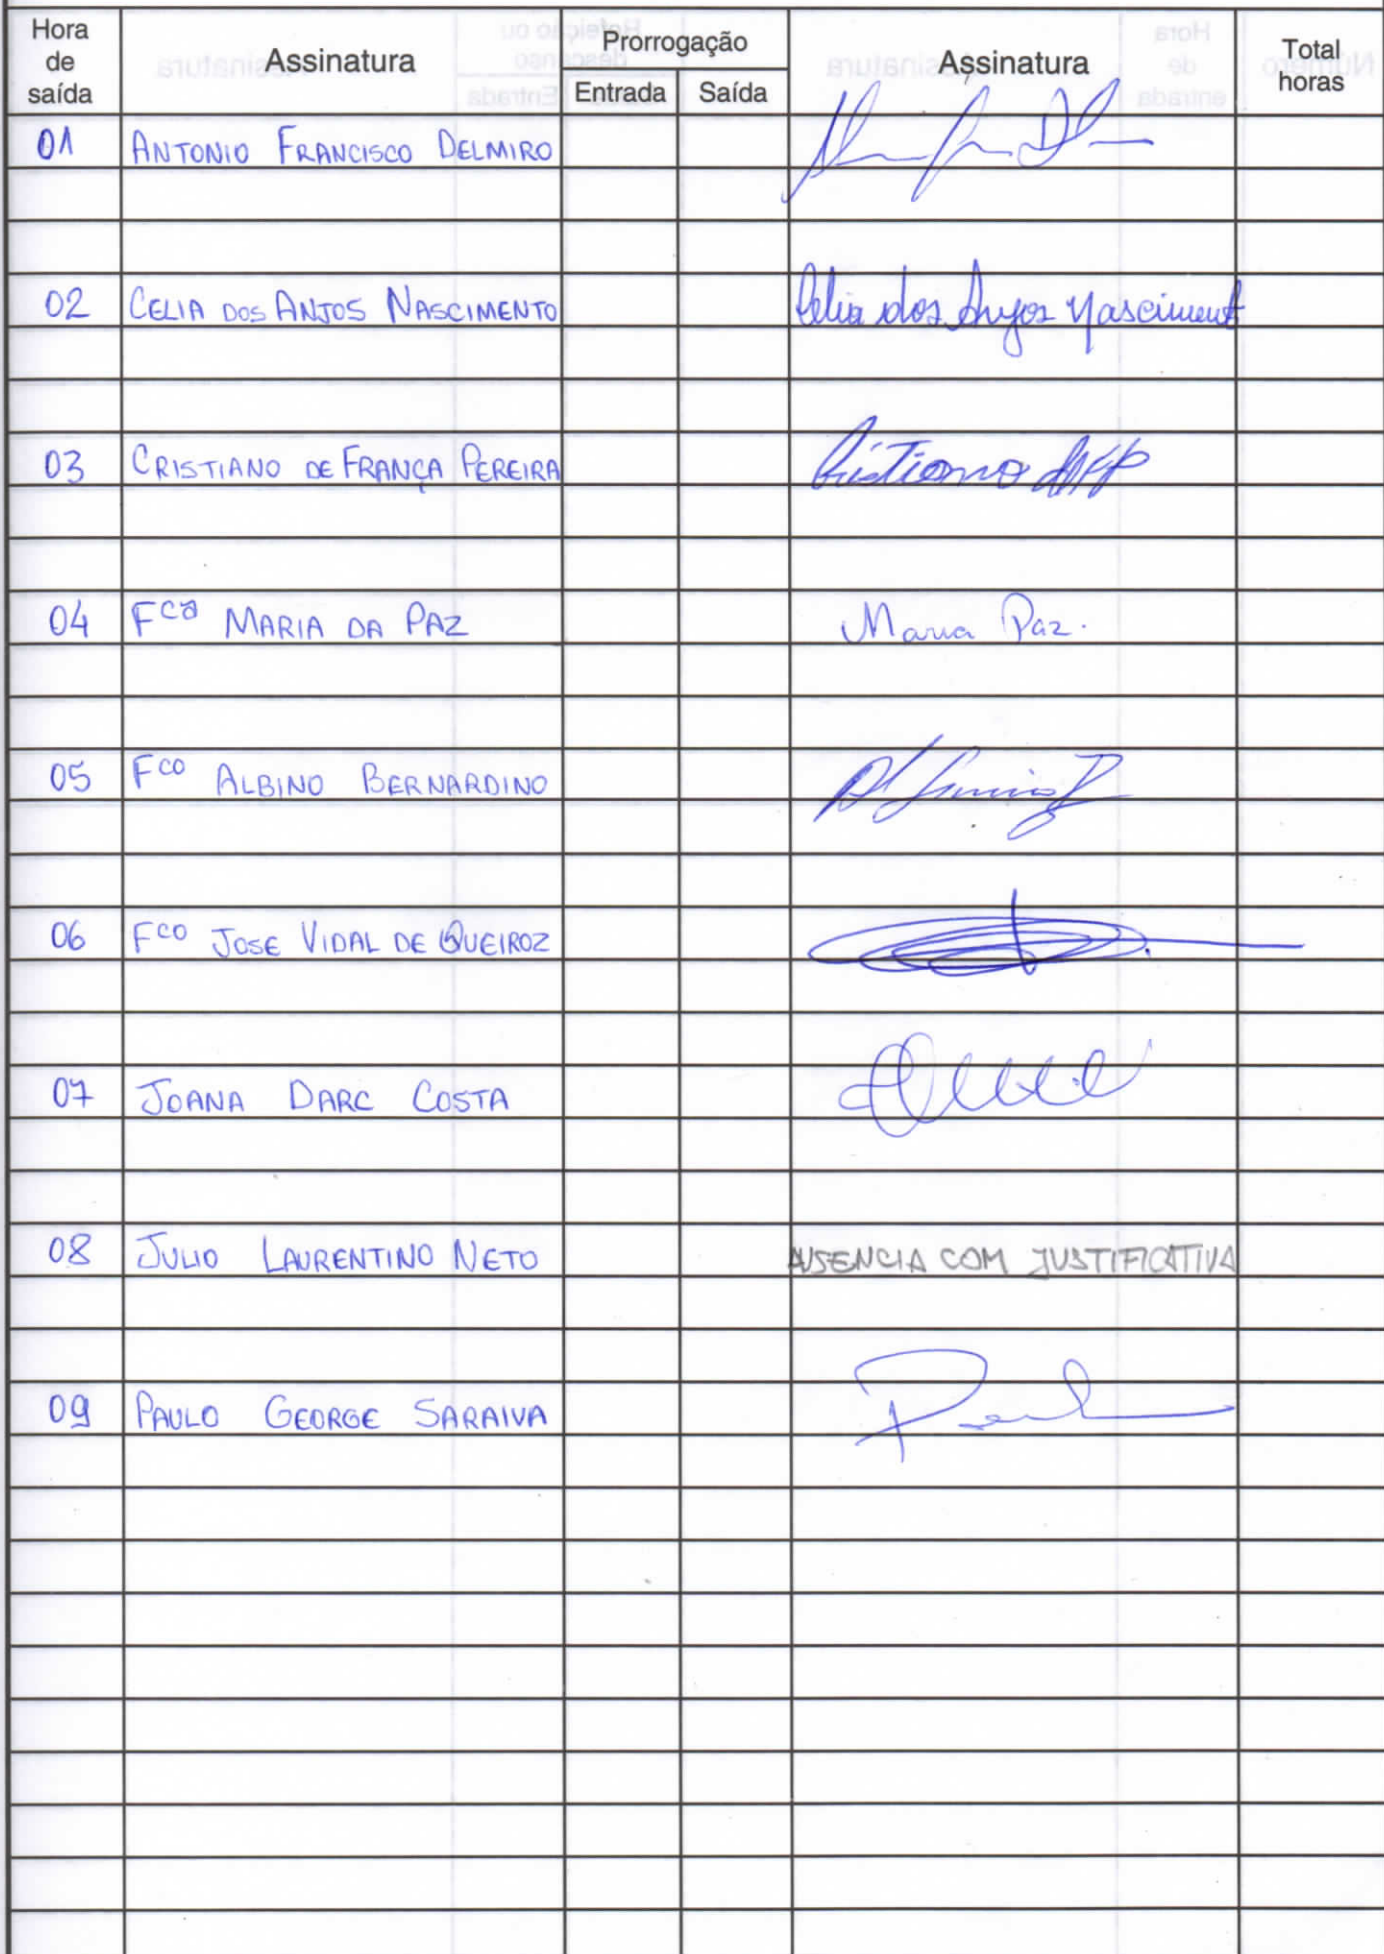 Hora de saída Assinatura Prorrogação Entrada Saída Assinatura Total horas
01 ANTONIO FRANCISCO DELMIRO
02 CELIA DOS ANJOS NASCIMENTO Celia dos Anjos Nasciment
03 CRISTIANO DE FRANÇA PEREIRA Cristiano
04 Fca MARIA DA PAZ Maria Paz.
05 Fco ALBINO BERNARDINO
06 Fco JOSE VIDAL DE QUEIROZ
07 JOANA DARC COSTA
08 JULIO LAURENTINO NETO AUSENCIA COM JUSTIFICATIVA
09 PAULO GEORGE SARAIVA